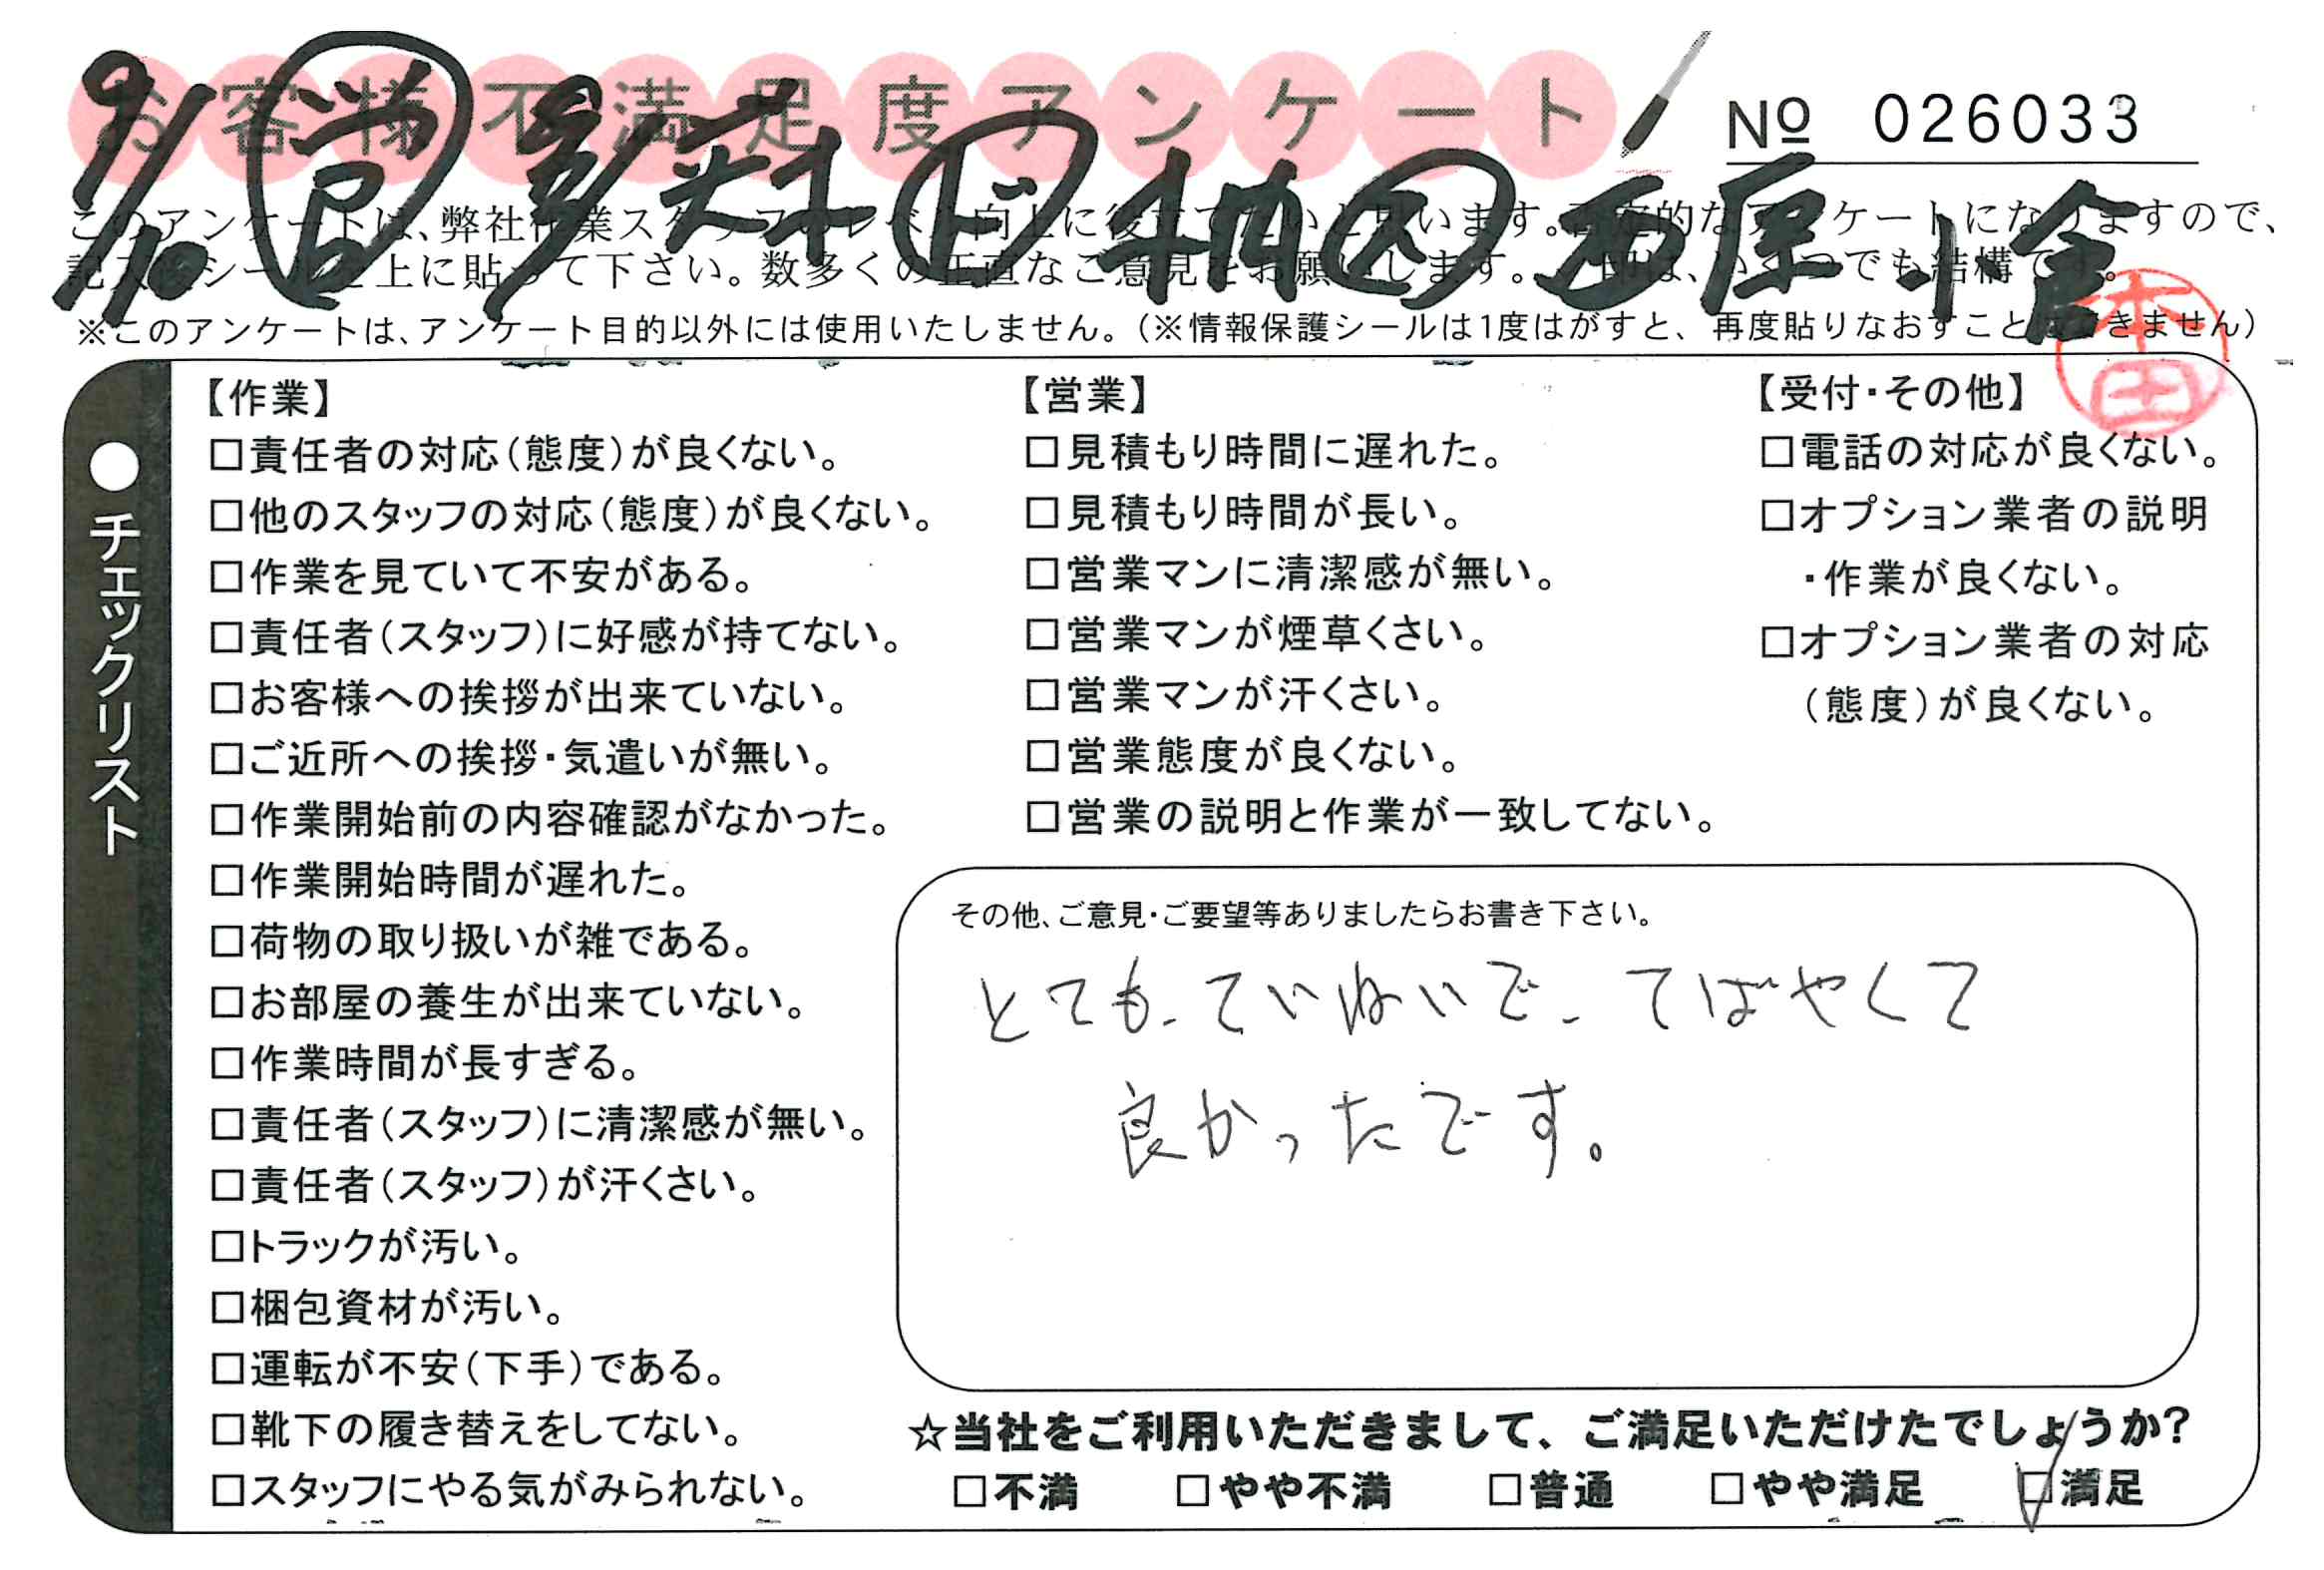 お客様不満足度アンケート
№ 026033
9/10 営 ド 西原 小舎
このアンケートは、弊社作業スタッフのレベル向上に役立てたいと思います。なアンケートになりますので、
記入後シールを上に貼って下さい。数多くの正直なご意見をお願いします。 いくつでも結構です。
※このアンケートは、アンケート目的以外には使用いたしません。(※情報保護シールは1度はがすと、再度貼りなおすことはできません)
本田
●チェックリスト
【作業】
□責任者の対応(態度)が良くない。
□他のスタッフの対応(態度)が良くない。
□作業を見ていて不安がある。
□責任者(スタッフ)に好感が持てない。
□お客様への挨拶が出来ていない。
□ご近所への挨拶・気遣いが無い。
□作業開始前の内容確認がなかった。
□作業開始時間が遅れた。
□荷物の取り扱いが雑である。
□お部屋の養生が出来ていない。
□作業時間が長すぎる。
□責任者(スタッフ)に清潔感が無い。
□責任者(スタッフ)が汗くさい。
□トラックが汚い。
□梱包資材が汚い。
□運転が不安(下手)である。
□靴下の履き替えをしてない。
□スタッフにやる気がみられない。
【営業】
□見積もり時間に遅れた。
□見積もり時間が長い。
□営業マンに清潔感が無い。
□営業マンが煙草くさい。
□営業マンが汗くさい。
□営業態度が良くない。
□営業の説明と作業が一致してない。
【受付・その他】
□電話の対応が良くない。
□オプション業者の説明
・作業が良くない。
□オプション業者の対応
(態度)が良くない。
その他、ご意見・ご要望等ありましたらお書き下さい。
とても、ていねいで、てばやくて
良かったです。
☆当社をご利用いただきまして、ご満足いただけたでしょうか?
□不満 □やや不満 □普通 □やや満足 ☑満足